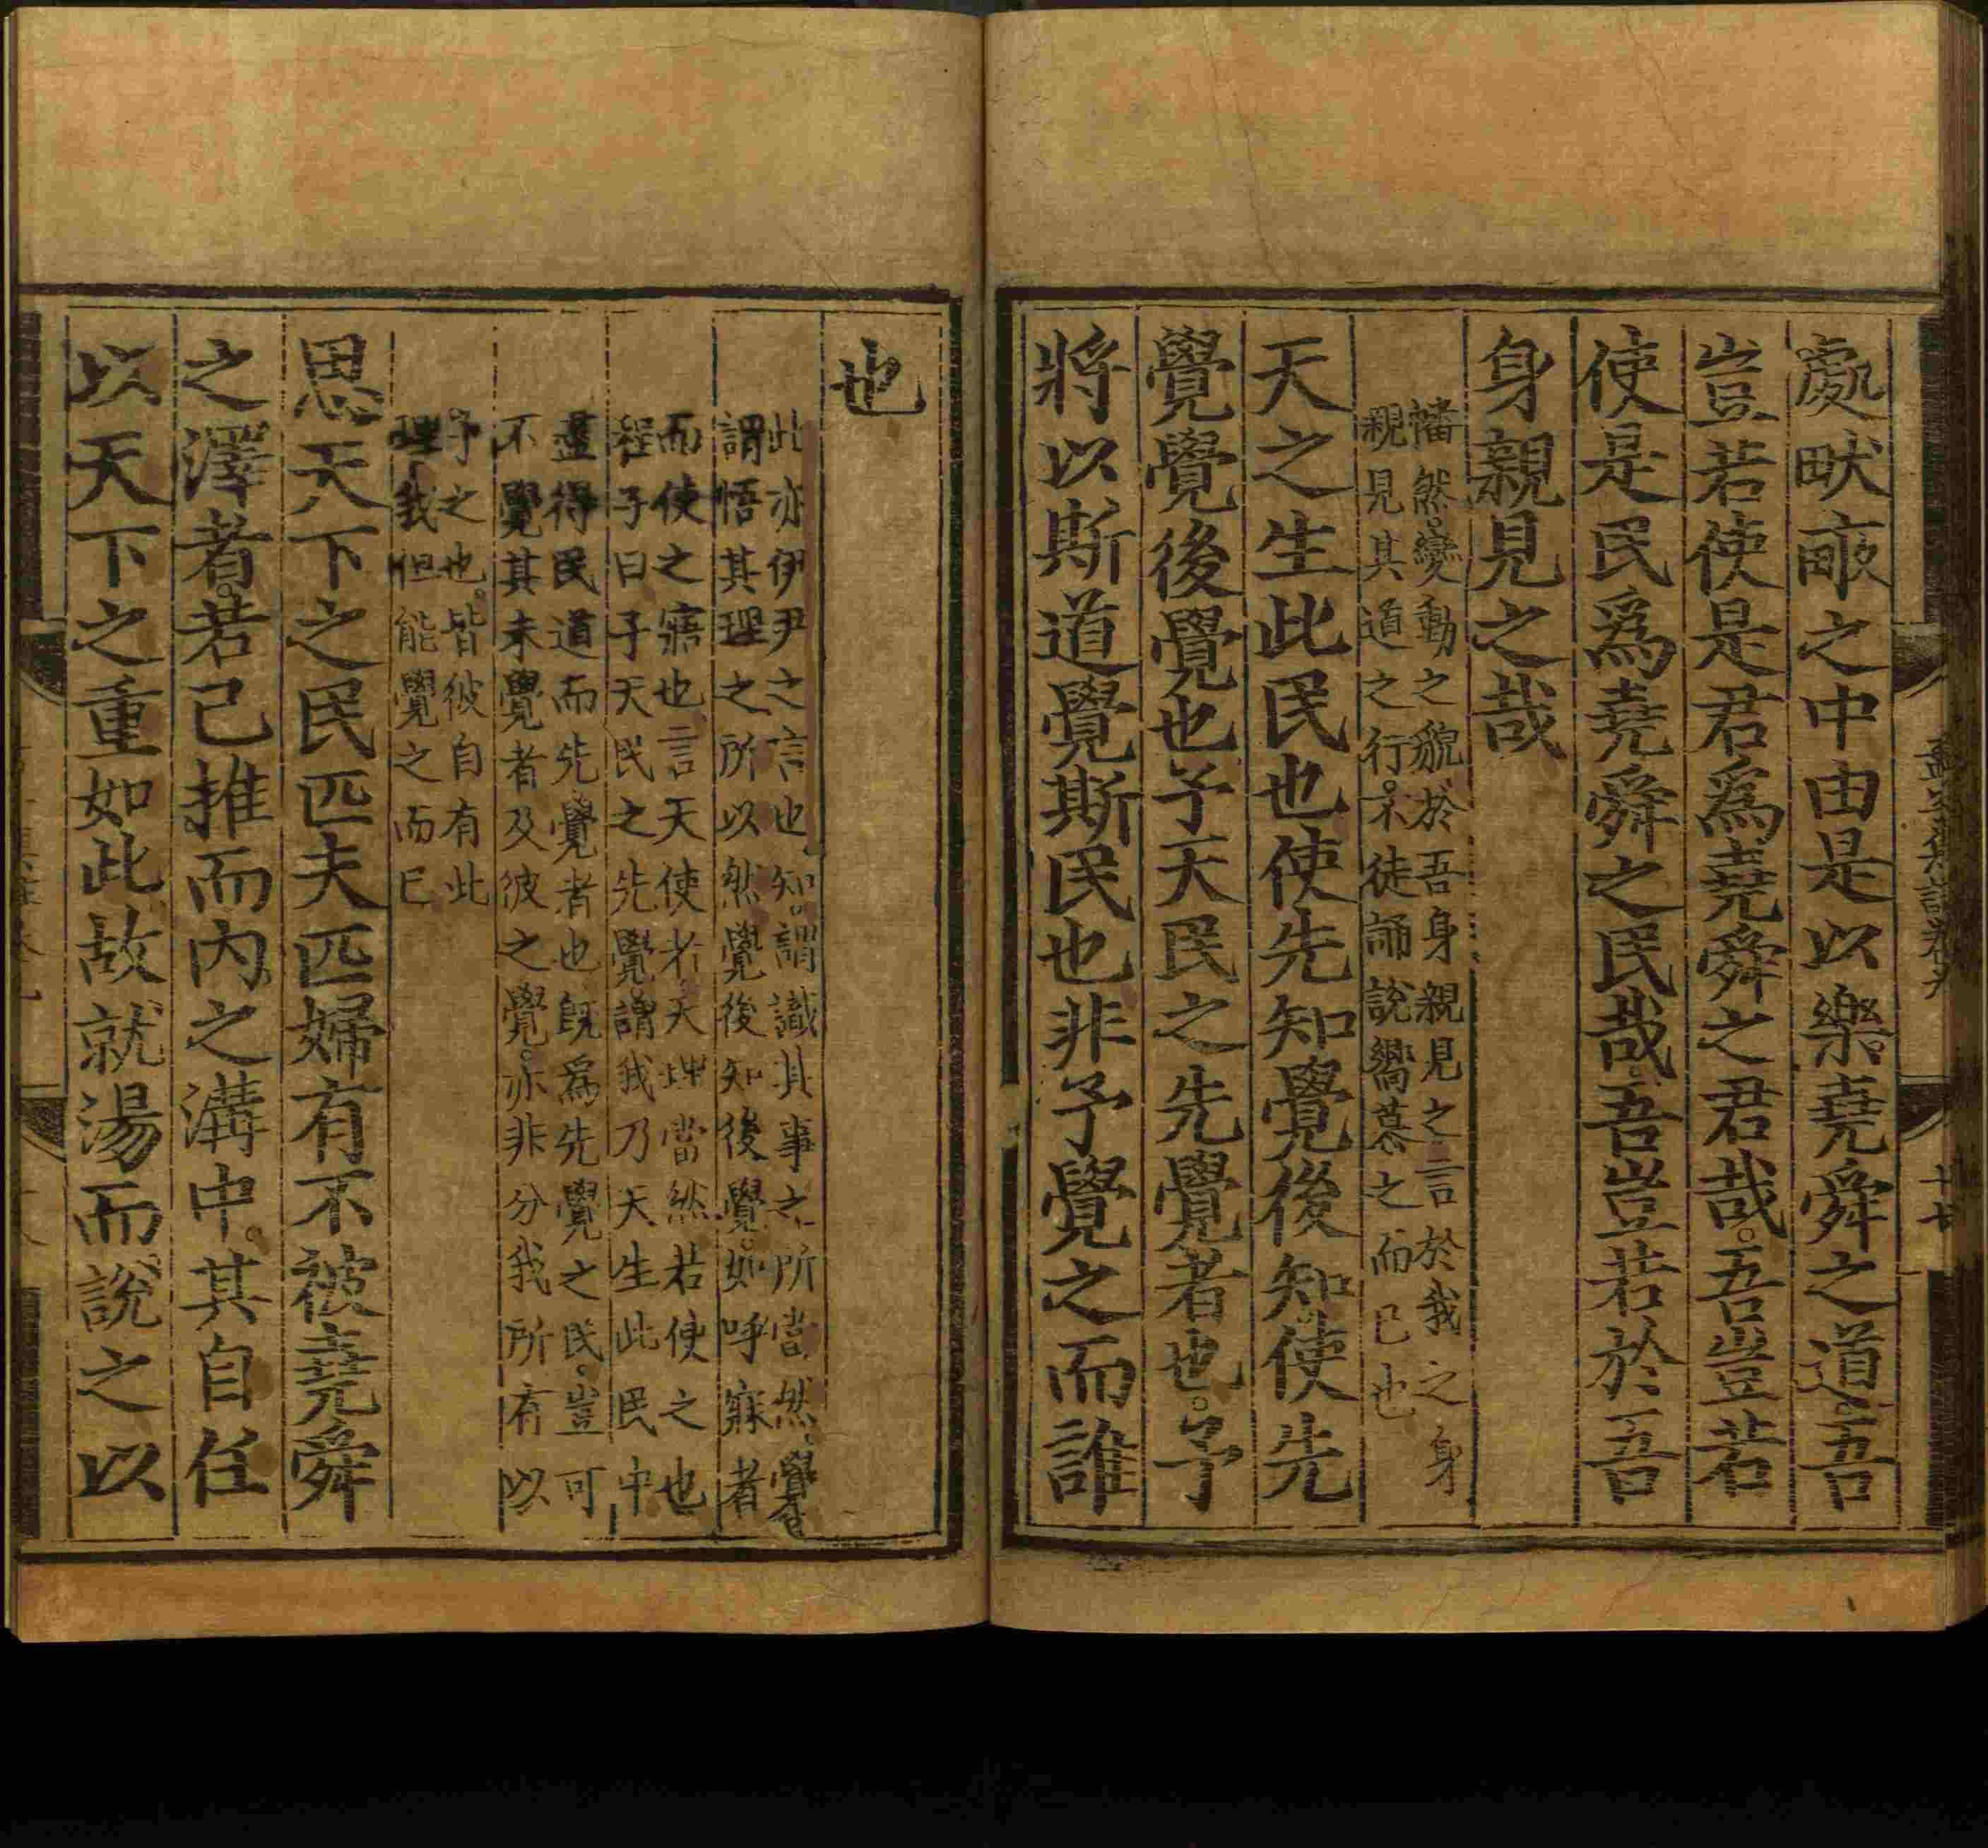 處畎畝之中由是以樂堯舜之道吾
豈若使是君爲堯舜之君哉吾豈若
使是民爲堯舜之民哉吾豈若於吾
身親見之哉
幡然變動之貌於吾身親見之言於我之身
親見其道之行不徒誦說嚮慕之而已也
天之生此民也使先知覺後知使先
覺覺後覺也予天民之先覺者也予
將以斯道覺斯民也非予覺之而誰
也
此亦伊尹之言也知謂識其事之所當然覺
謂悟其理之所以然覺後知後覺如呼寐者
而使之寤也言天使者天理當然若使之也
程子曰予天民之先覺謂我乃天生此民中
盡得民道而先覺者也旣爲先覺之民豈可
不覺其未覺者及彼之覺亦非分我所有以
予之也皆彼自有此
理我但能覺之而已
思天下之民匹夫匹婦有不被堯舜
之澤者若己推而內之溝中其自任
以天下之重如此故就湯而說之以